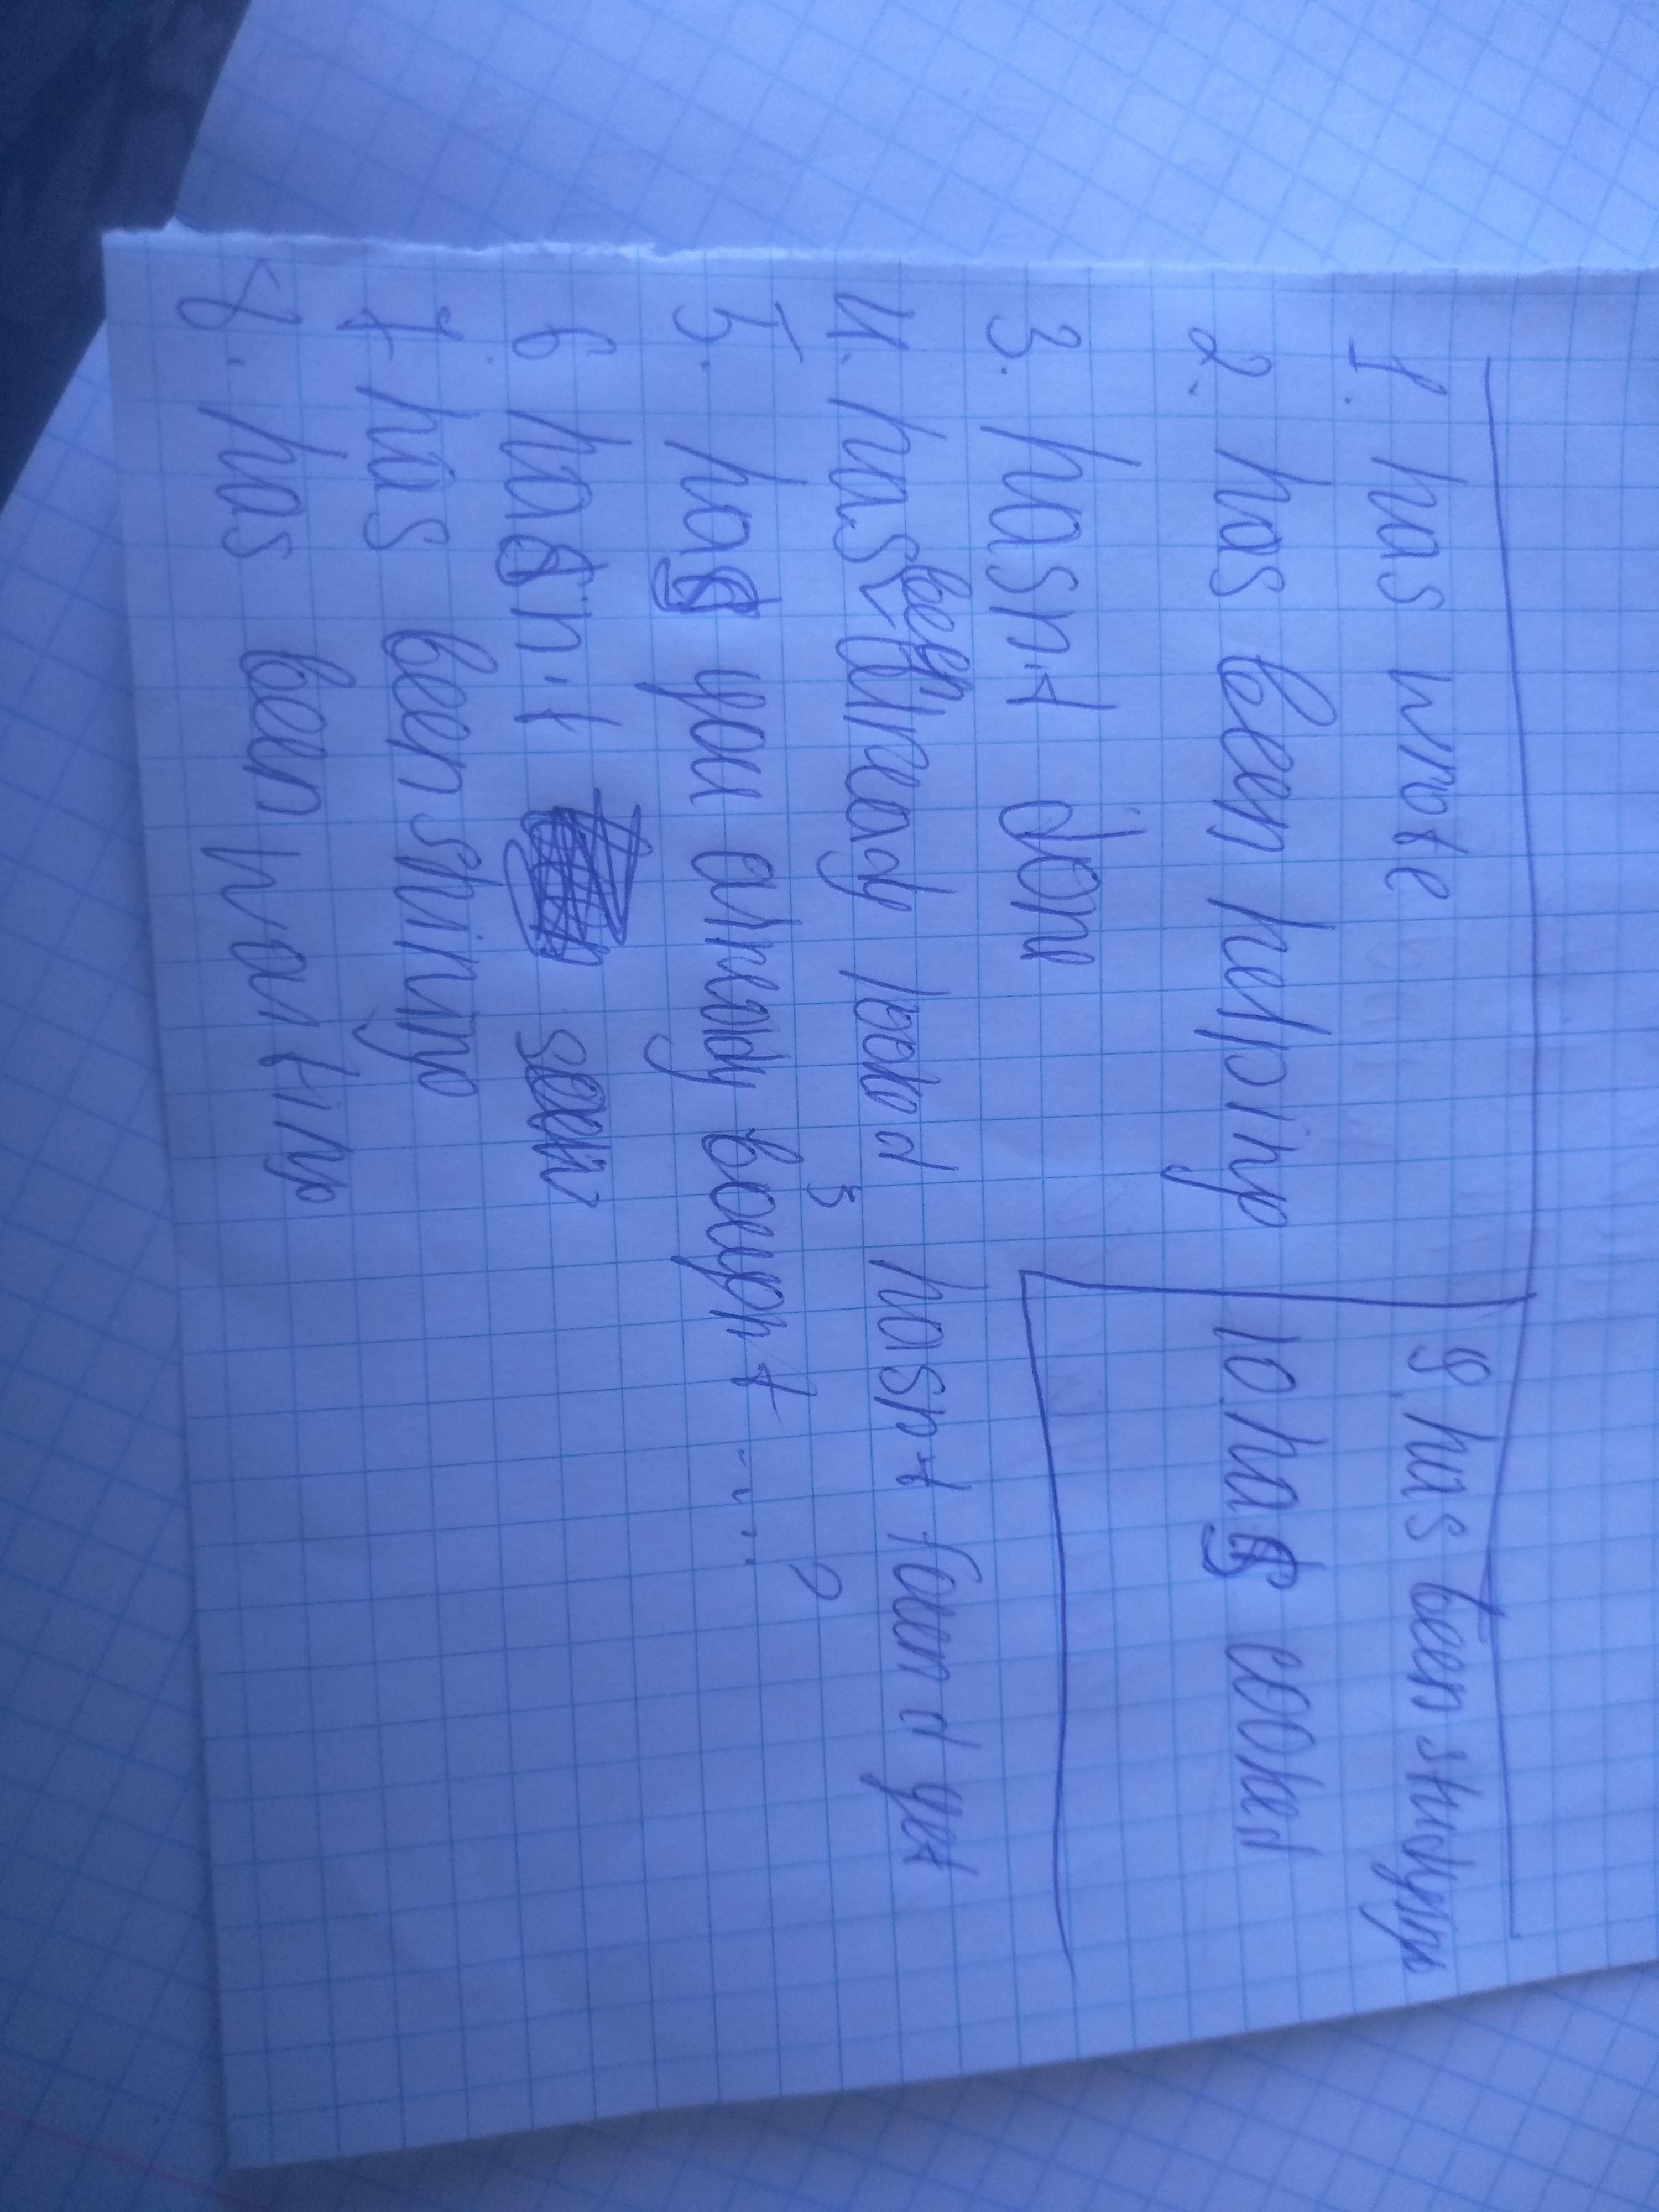 1. has wrote
2. has been helping
3. hasn't done
4. has been already looked hasn't found yet
5. has you already bought ... ?
6 hasn't seen
7. has been shining
8. has been waiting
9. has been studying
10. has cooked